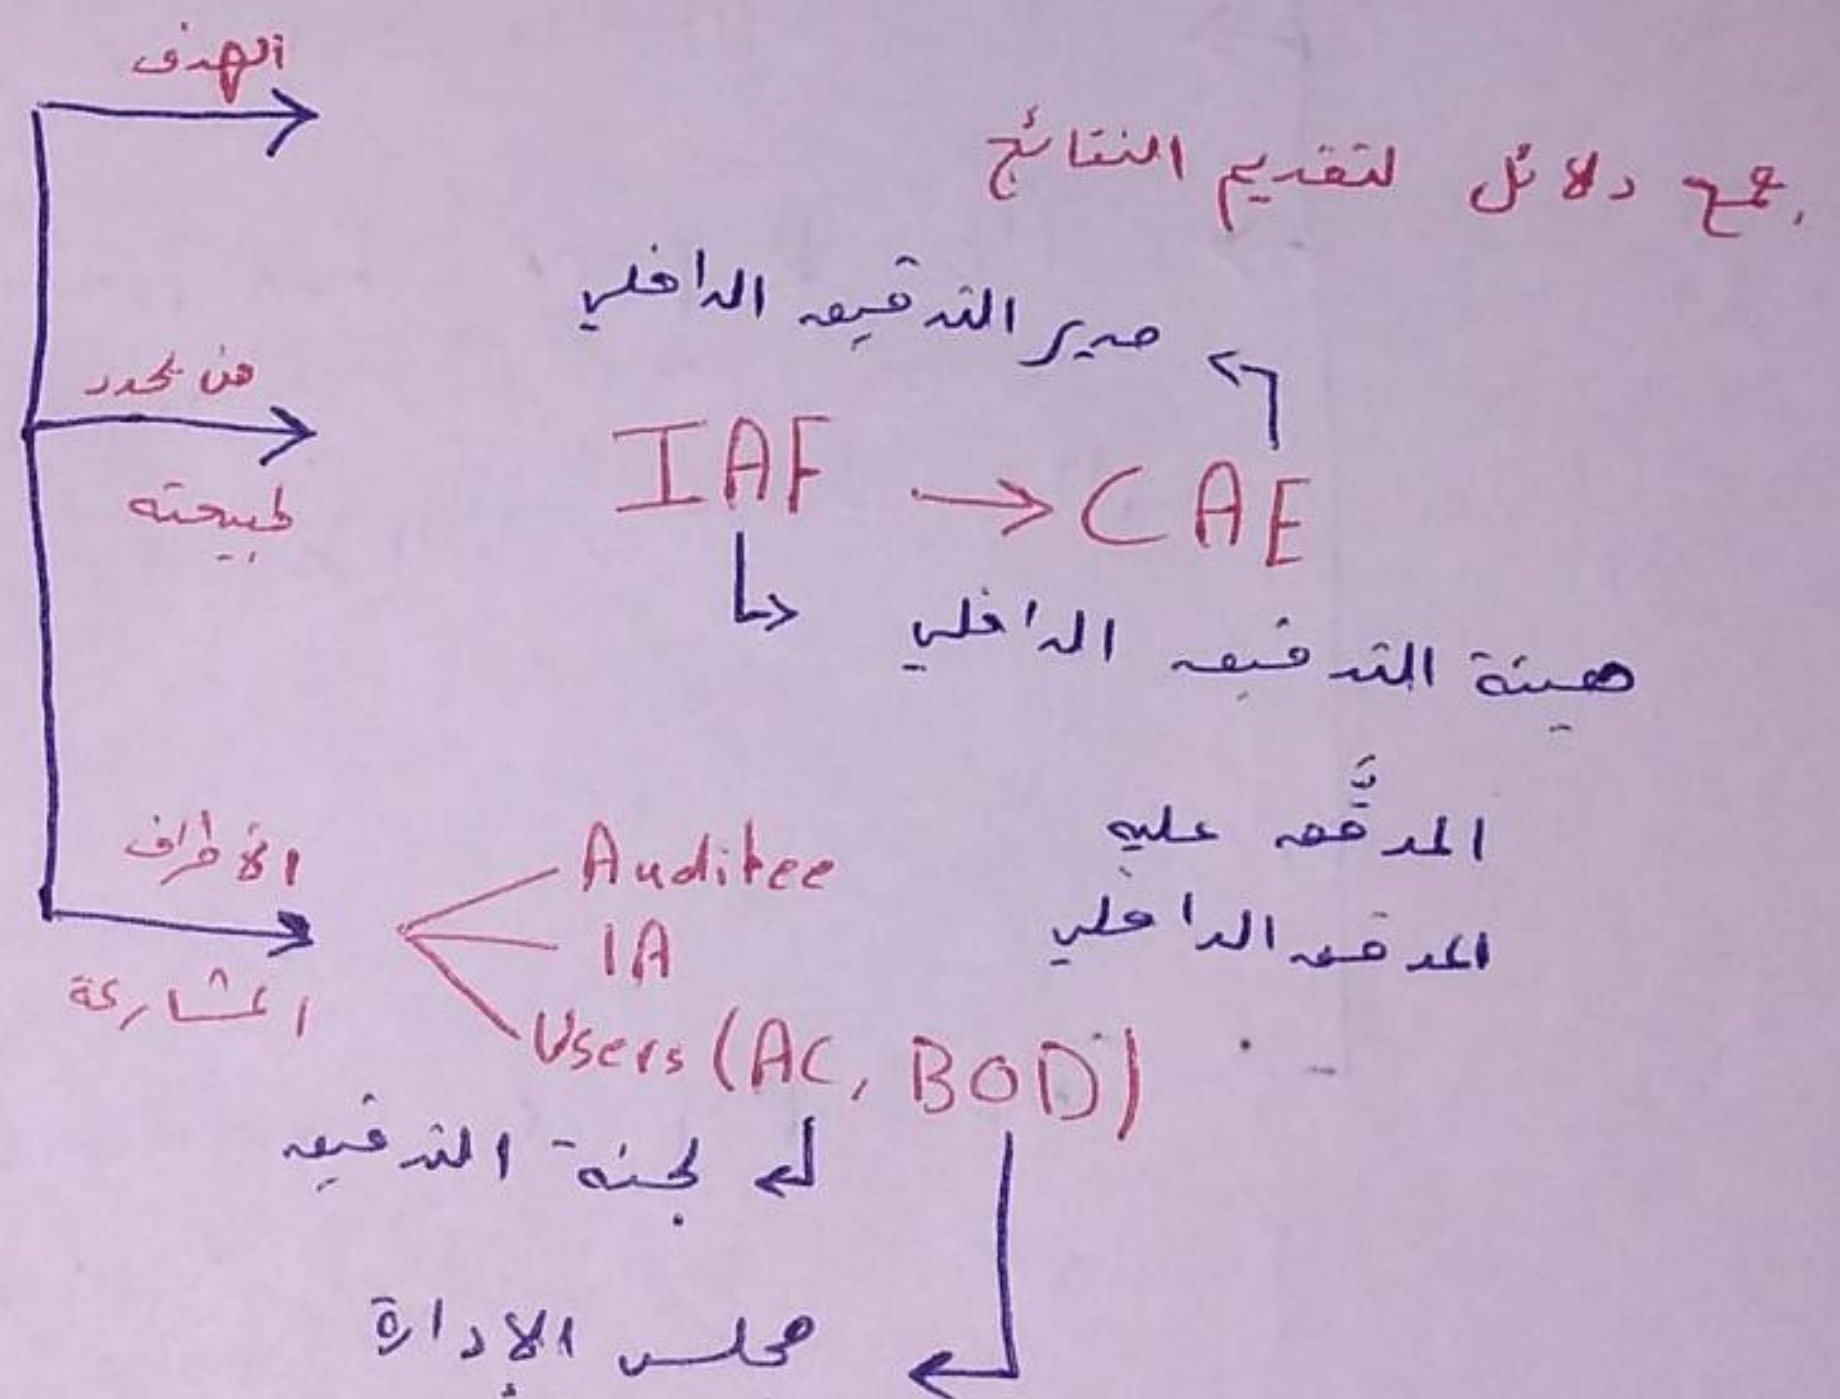 الهدف
جمع دلائل لتقديم النتائج
مدير التدقيق الداخلي
من يحدد
طبيعته
IAF → CAE
هيئة التدقيق الداخلي
الأطراف
المشاركة
Auditee
المدقَّق عليه
IA
المدقق الداخلي
Users (AC, BOD)
لجنة التدقيق
مجلس الإدارة